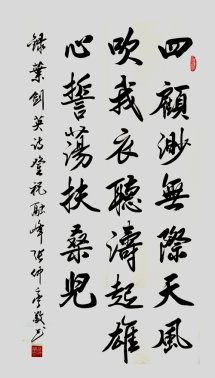 四顧渺無際天風
吹我衣聽濤起雄
心誓蕩扶桑兒
錄葉劍英詩登祝融峰張仲愈敬書